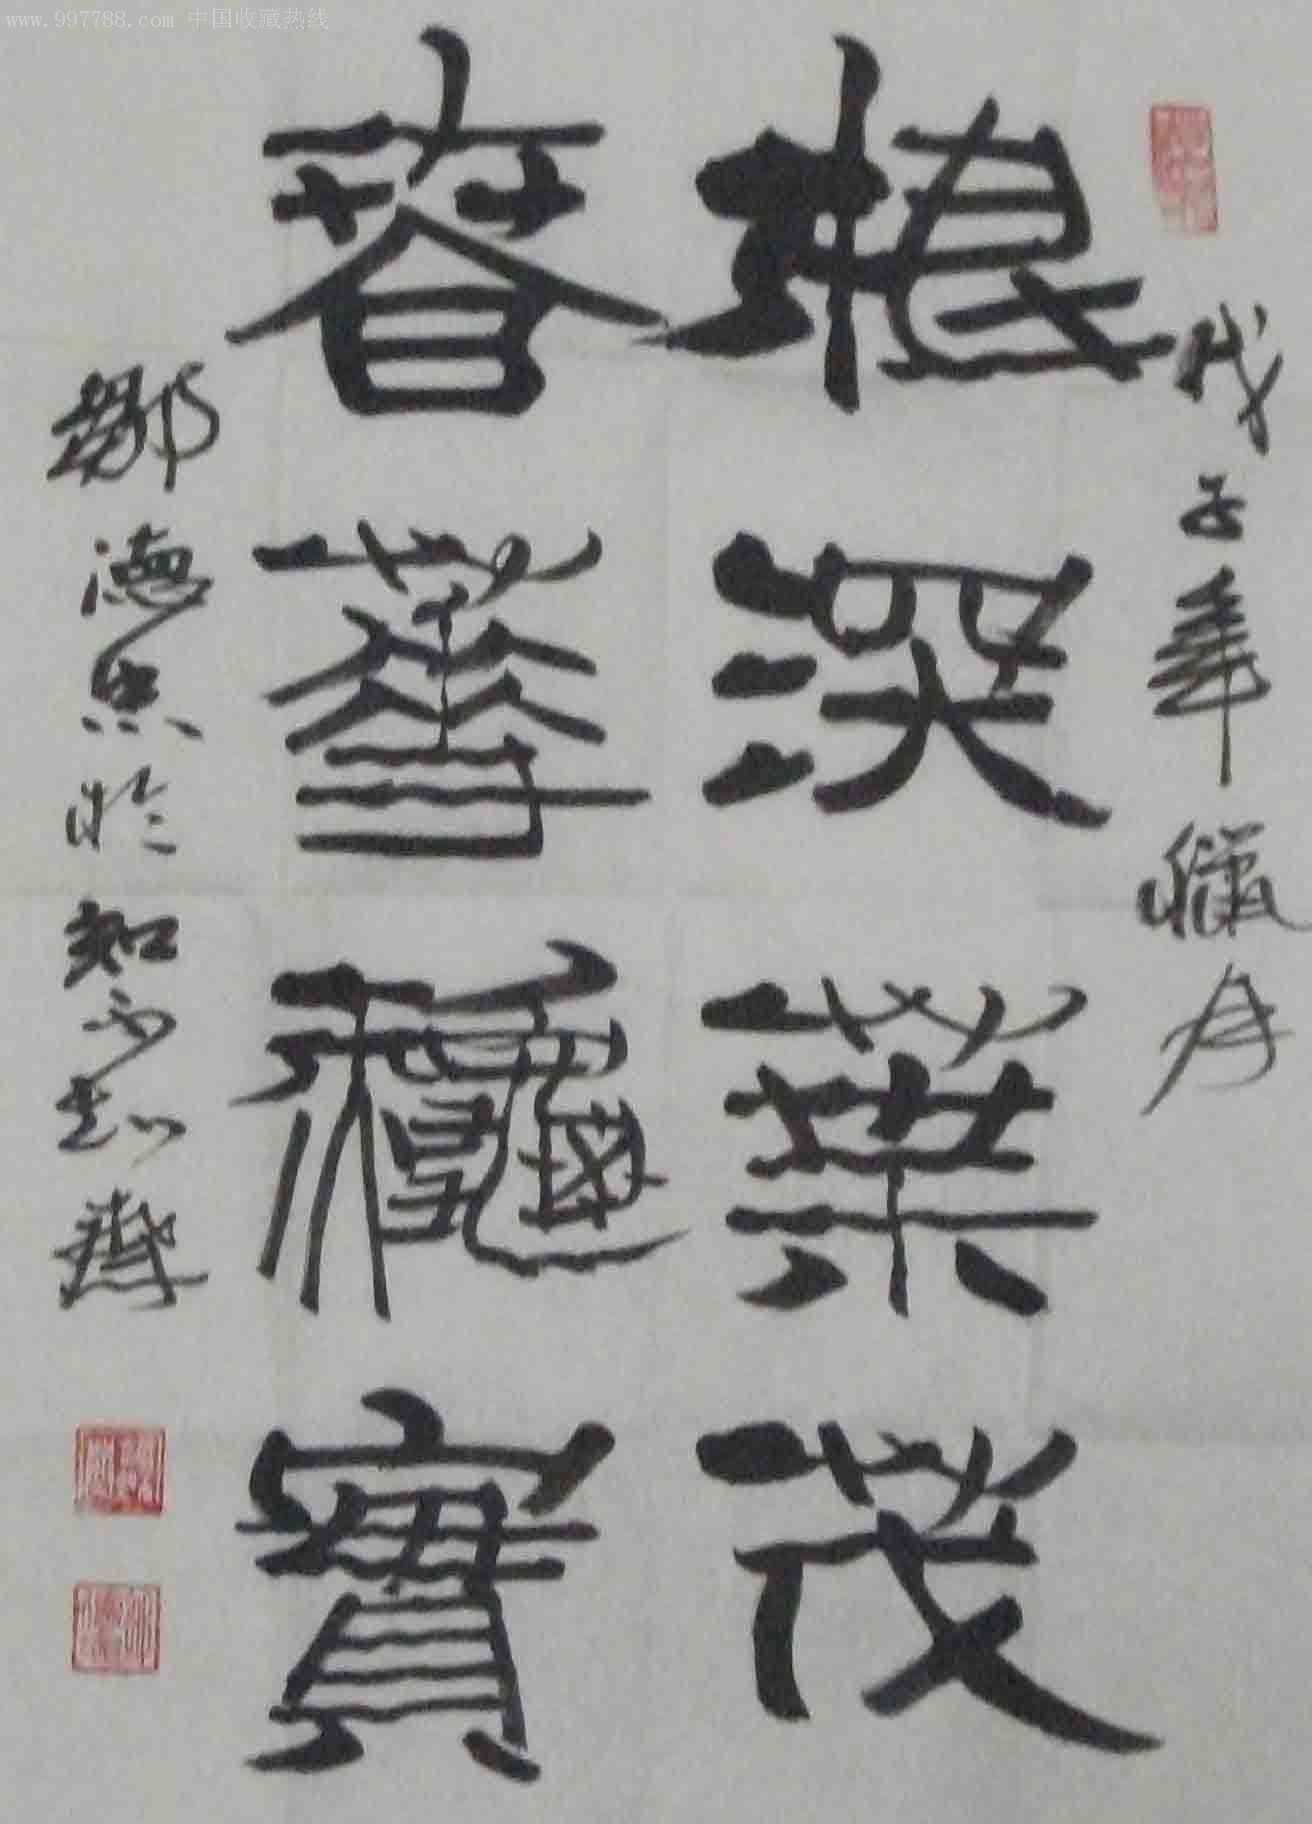 www.997788.com 中国收藏热线
戊子年臘月
根深葉茂
春華穐實
鄒德忠於知不知齋